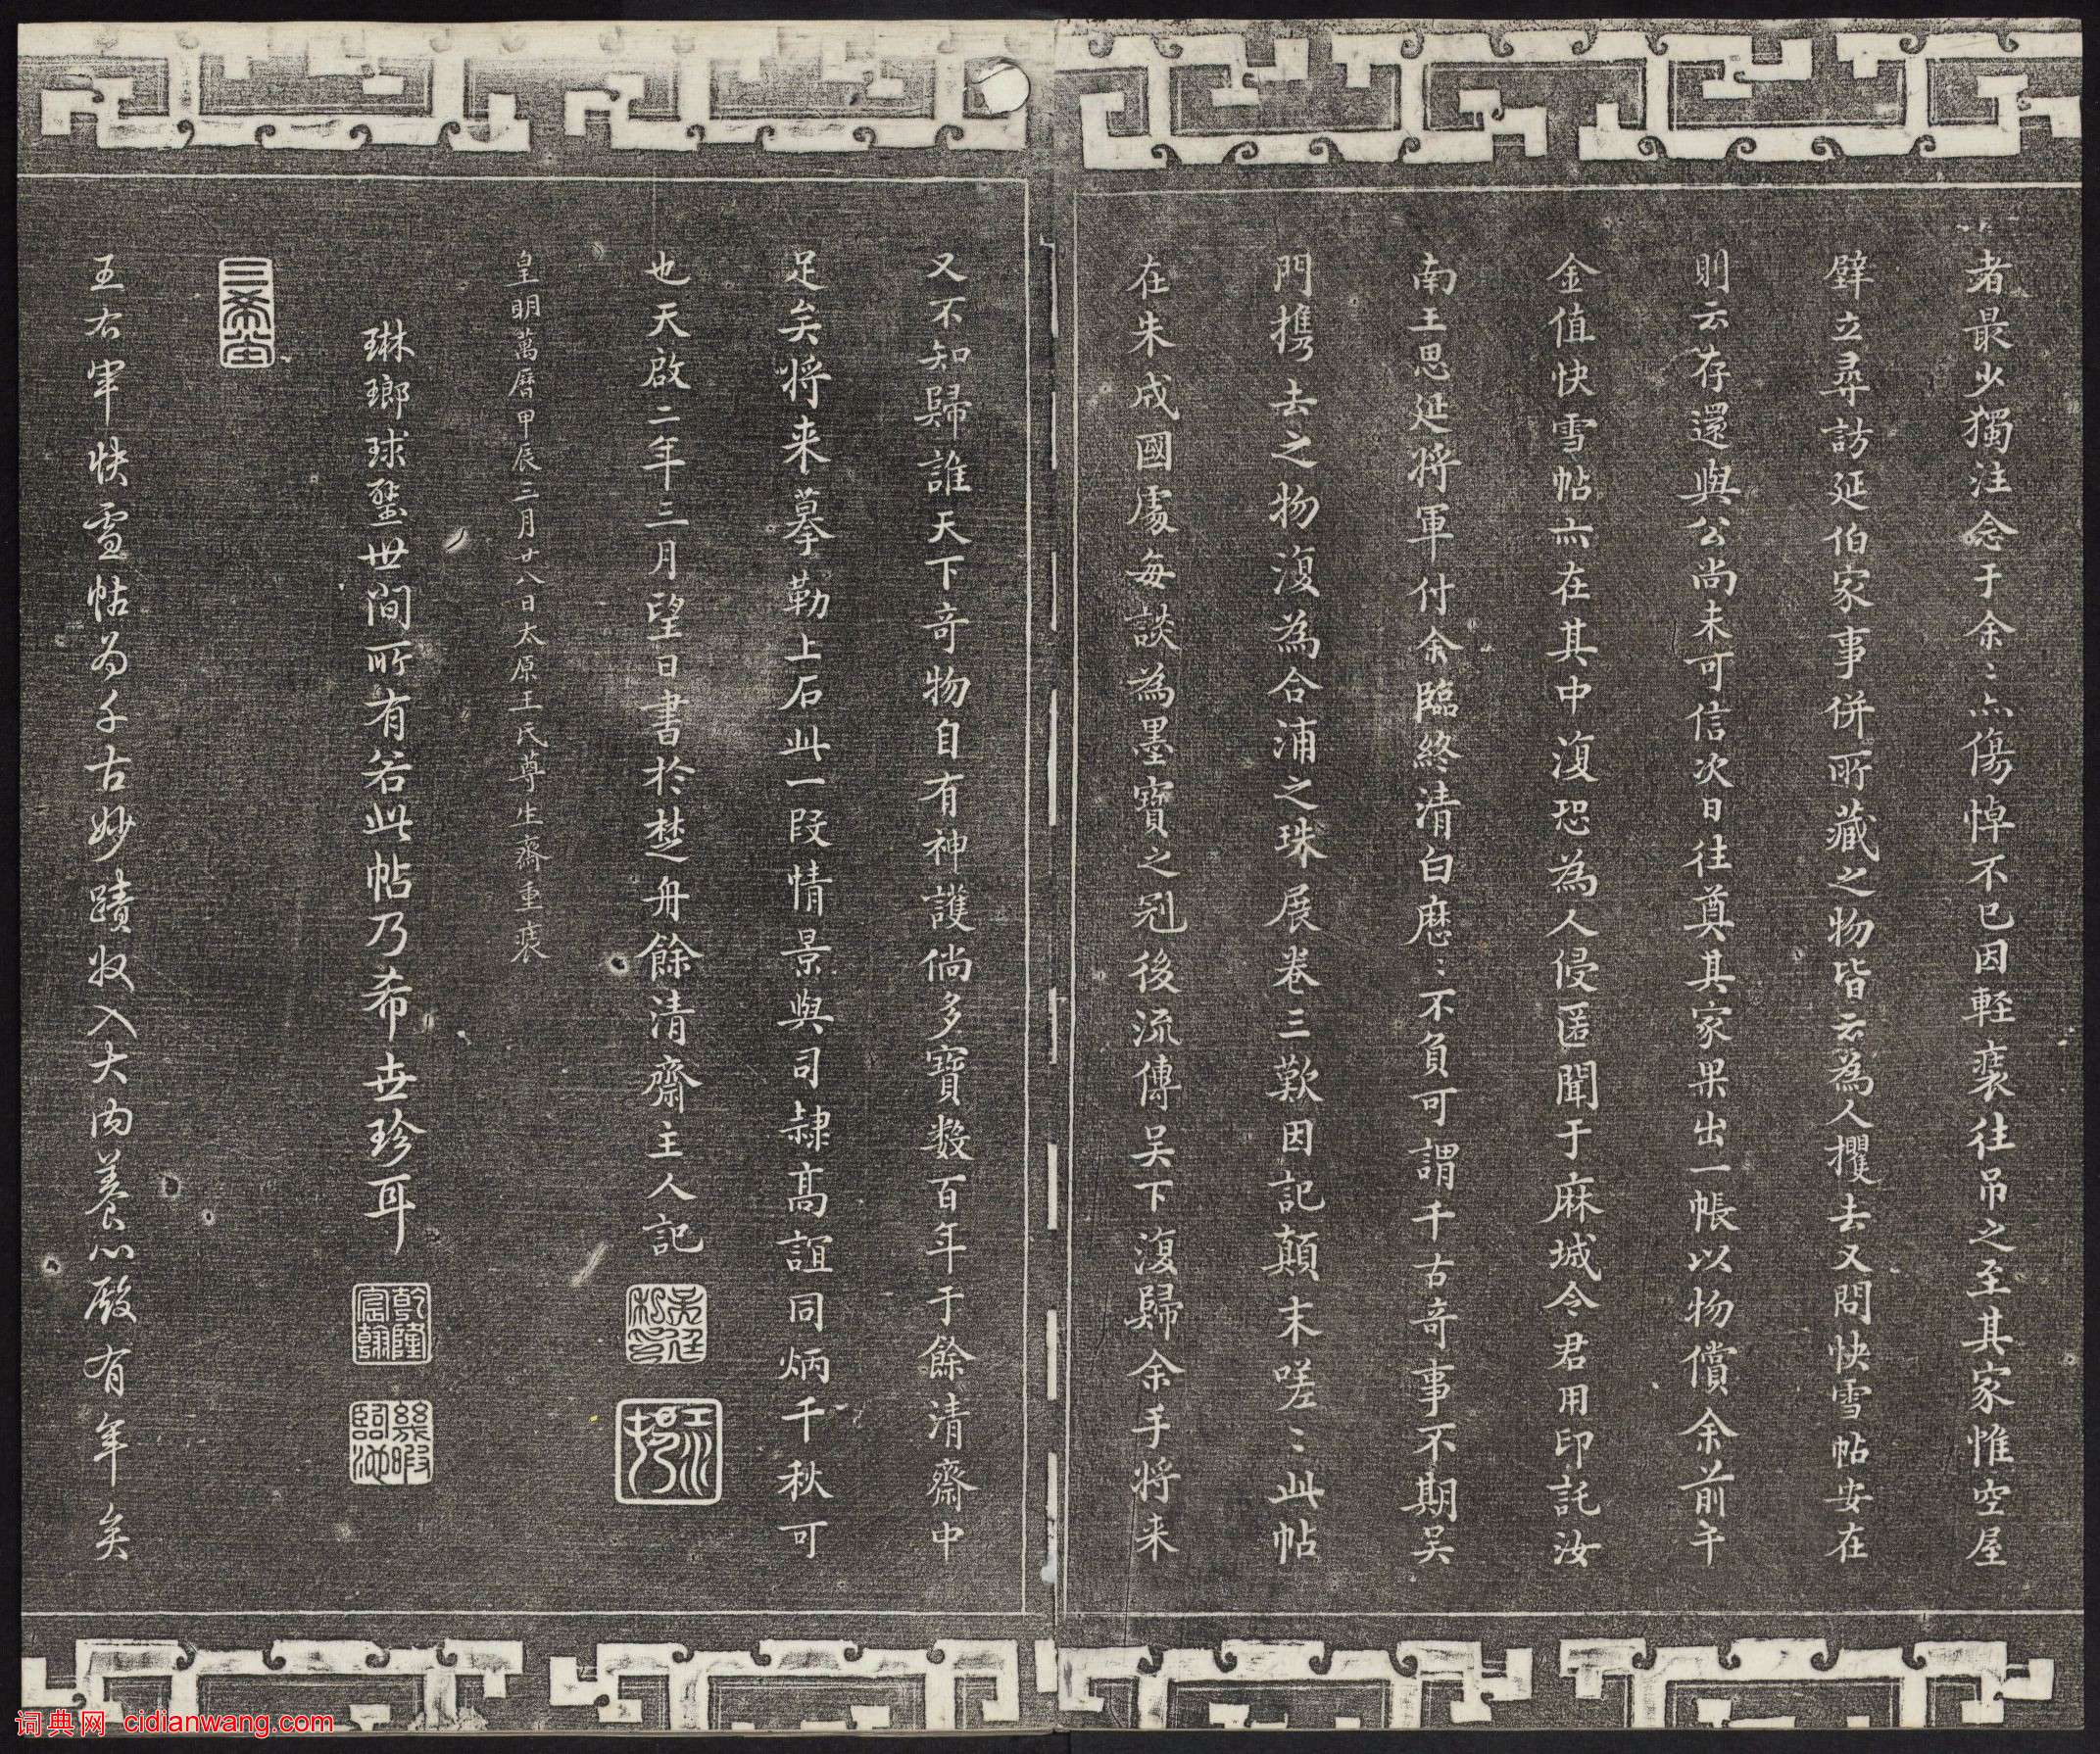 者最少獨注念于余〻亦傷悼不已因輕裘往吊之至其家惟空屋
壁立尋訪延伯家事併所藏之物皆云為人攫去又問快雪帖安在
則云存還與公尚未可信次日往奠其家果出一帳以物償余前午
金值快雪帖亦在其中復恐為人侵匿聞于麻城令君用印託汝
南王思延將軍付余臨終清白歷〻不負可謂千古奇事不期吴
門携去之物復為合浦之珠展卷三歎因記顛末嗟〻此帖
在朱成國處每談為墨寶之冠後流傳吴下復歸余手將来
又不知歸誰天下奇物自有神護倘多寶数百年于餘清齋中
足矣將来摹勒上石此一段情景與司隷髙誼同炳千秋可
也天啟二年三月望日書於楚舟餘清齋主人記
吴廷私印
江村
皇明萬曆甲辰三月廿八日太原王氏尊生齋重裘
琳瑯球璧世間所有若此帖乃希世珍耳
乾隆宸翰
幾暇臨池
三希堂
王右軍快雪帖為千古妙蹟收入大内養心殿有年矣
詞典网 cidianwang.com